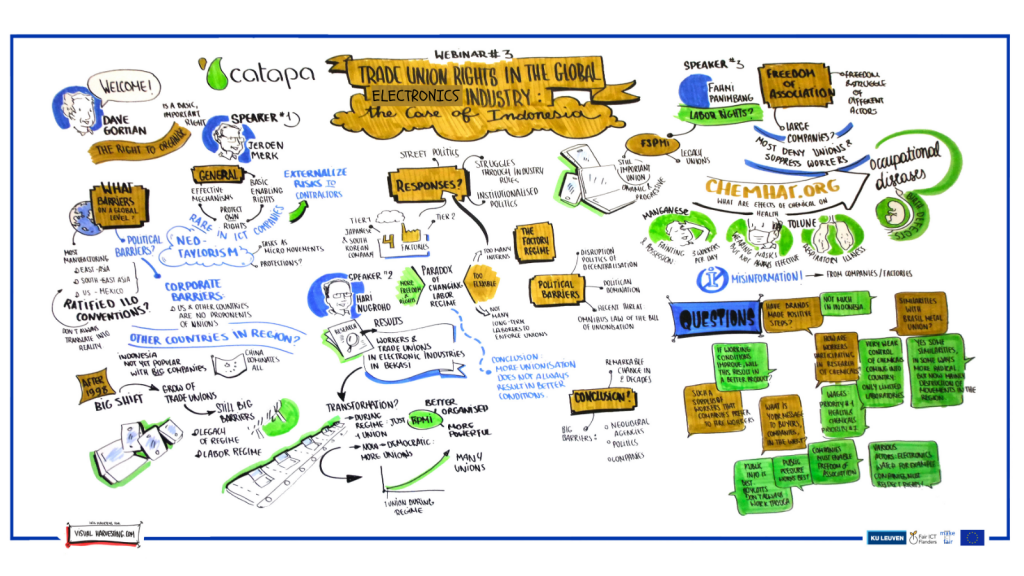 WELCOME!
DAVE
GORMAN
IS A BASIC,
IMPORTANT
RIGHT
THE RIGHT TO ORGANISE
catapa
WEBINAR #3
TRADE UNION RIGHTS IN THE GLOBAL
ELECTRONICS INDUSTRY:
the Case of Indonesia
SPEAKER #1
JEROEN
MERK
GENERAL
EFFECTIVE
MECHANISMS
BASIC
ENABLING
RIGHTS
PROTECT
OWN
RIGHTS
RARE IN ICT COMPANIES
EXTERNALIZE
RISKS TO
CONTRACTORS
WHAT
BARRIERS
ON A GLOBAL
LEVEL?
MOST
MANUFACTURING
EAST-ASIA
SOUTH-EAST ASIA
US - MEXICO
POLITICAL
BARRIERS?
NEO-
TAYLORISM
TASKS AS
MICRO MOVEMENTS
PROTECTIONS?
RATIFIED ILO
CONVENTIONS?
DON'T ALWAYS
TRANSLATE INTO
REALITY
CORPORATE
BARRIERS:
US & OTHER COUNTRIES
ARE NO PROPONENTS
OF UNIONS
OTHER COUNTRIES IN REGION?
INDONESIA
NOT YET POPULAR
WITH BIG COMPANIES
CHINA
DOMINATES
ALL
AFTER
1998
BIG SHIFT
GROW OF
TRADE UNIONS
STILL BIG
BARRIERS
LEGACY
OF REGIME
LABOR REGIME
STREET POLITICS
RESPONSES?
STRUGGLES
THROUGH INDUSTRY
RULES
INSTITUTIONALISED
POLITICS
TIER 1
JAPANESE
& SOUTH
KOREAN
COMPANY
4
FACTORIES
TIER 2
TOO MANY
INTERNS
SPEAKER #2
HARI
NUGROHO
MORE
FREEDOM
RIGHTS
PARADOX
OF
CHANGING
LABOR
REGIME
TOO
FLEXIBLE
NOT
MANY
LONG-TERM
LABORERS TO
ENFORCE UNIONS
RESEARCH
RESULTS
WORKERS &
TRADE UNIONS
IN ELECTRONIC INDUSTRIES
IN BEKASI
CONCLUSION
MORE UNIONISATION
DOES NOT ALWAYS
RESULT IN BETTER
CONDITIONS.
TRANSFORMATION?
DURING
REGIME: JUST
1 UNION
NOW = DEMOCRATIC:
MORE UNIONS
BETTER
ORGANISED
MORE
POWERFUL
MANY
UNIONS
1 UNION DURING
REGIME
THE
FACTORY
REGIME
DISRUPTION
POLITICS OF
DECENTRALISATION
POLITICAL
BARRIERS
POLITICAL
DOMINATION
RECENT THREAT
OMNIBUS LAW OF THE BILL
OF UNIONISATION
CONCLUSION?
REMARKABLE
CHANGE IN
2 DECADES
BIG
BARRIERS:
NEOLIBERAL
AGENCIES
POLITICS
COMPANIES
SPEAKER #3
FAHMI
PANIMBANG
LABOR RIGHTS?
FSPMI
LEGACY
UNIONS
IMPORTANT
UNION
DYNAMIC &
PROGRESSIVE
FREEDOM
OF
ASSOCIATION
FREEDOM
STRUGGLE
OF
DIFFERENT
ACTORS
LARGE
COMPANIES?
MOST DENY UNIONS &
SUPPRESS WORKERS
CHEMHAT.ORG
WHAT ARE EFFECTS OF CHEMICAL ON
HEALTH
OCCUPATIONAL
DISEASES
BIRTH DEFECTS
MANGANESE
FAINTING
& POSSESSION
3 WORKERS
PER DAY
WEARING
MASKS
BUT NOT ALWAYS EFFECTIVE
TOLUNE
RESPIRATORY ILLNESS
MISINFORMATION!
FROM COMPANIES/FACTORIES
QUESTIONS
HAVE BRANDS
MADE POSITIVE
STEPS?
NOT MUCH
IN INDONESIA
SIMILARITIES
WITH
BRASIL METAL
UNION?
IF WORKING
CONDITIONS
IMPROVE, WILL
THIS RESULT IN
A BETTER PRODUCT?
HOW ARE
WORKERS
PARTICIPATING
IN RESEARCH
OF CHEMICALS?
VERY WEAK
CONTROL OF
CHEMICALS
COMING INTO
COUNTRY
ONLY LIMITED
LABORATORIES
YES SOME
SIMILARITIES,
IN SOME WAYS
MORE RADICAL
MOVEMENTS IN THE
REGION
WHAT IS
YOUR MESSAGE
TO BUYERS,
COMPANIES,
IN THE WEST?
PUBLIC
INFO IS
BEST
BOYCOTTS
DON'T ALWAYS
WORK THOUGH
PUBLIC
PRESSURE
WORKS BEST
COMPANIES
MUST ENABLE
FREEDOM OF
ASSOCIATION
VARIOUS
ACTORS: ELECTRONICS
WATCH FOR EXAMPLE
COMPANIES MUST
RESPECT RIGHTS
VISUAL HARVESTING.COM
KU LEUVEN
Fair ICT
Flanders